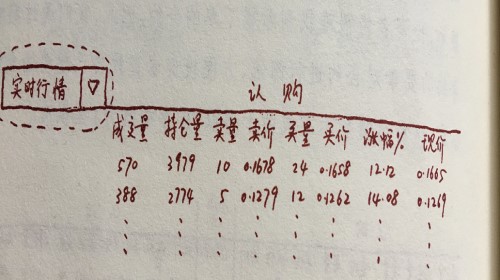 认购
实时行情 ▽
成交量 持仓量 卖量 卖价 买量 买价 涨幅% 现价
570 3979 10 0.1678 24 0.1658 12.12 0.1665
388 2774 5 0.1279 12 0.1262 14.08 0.1269